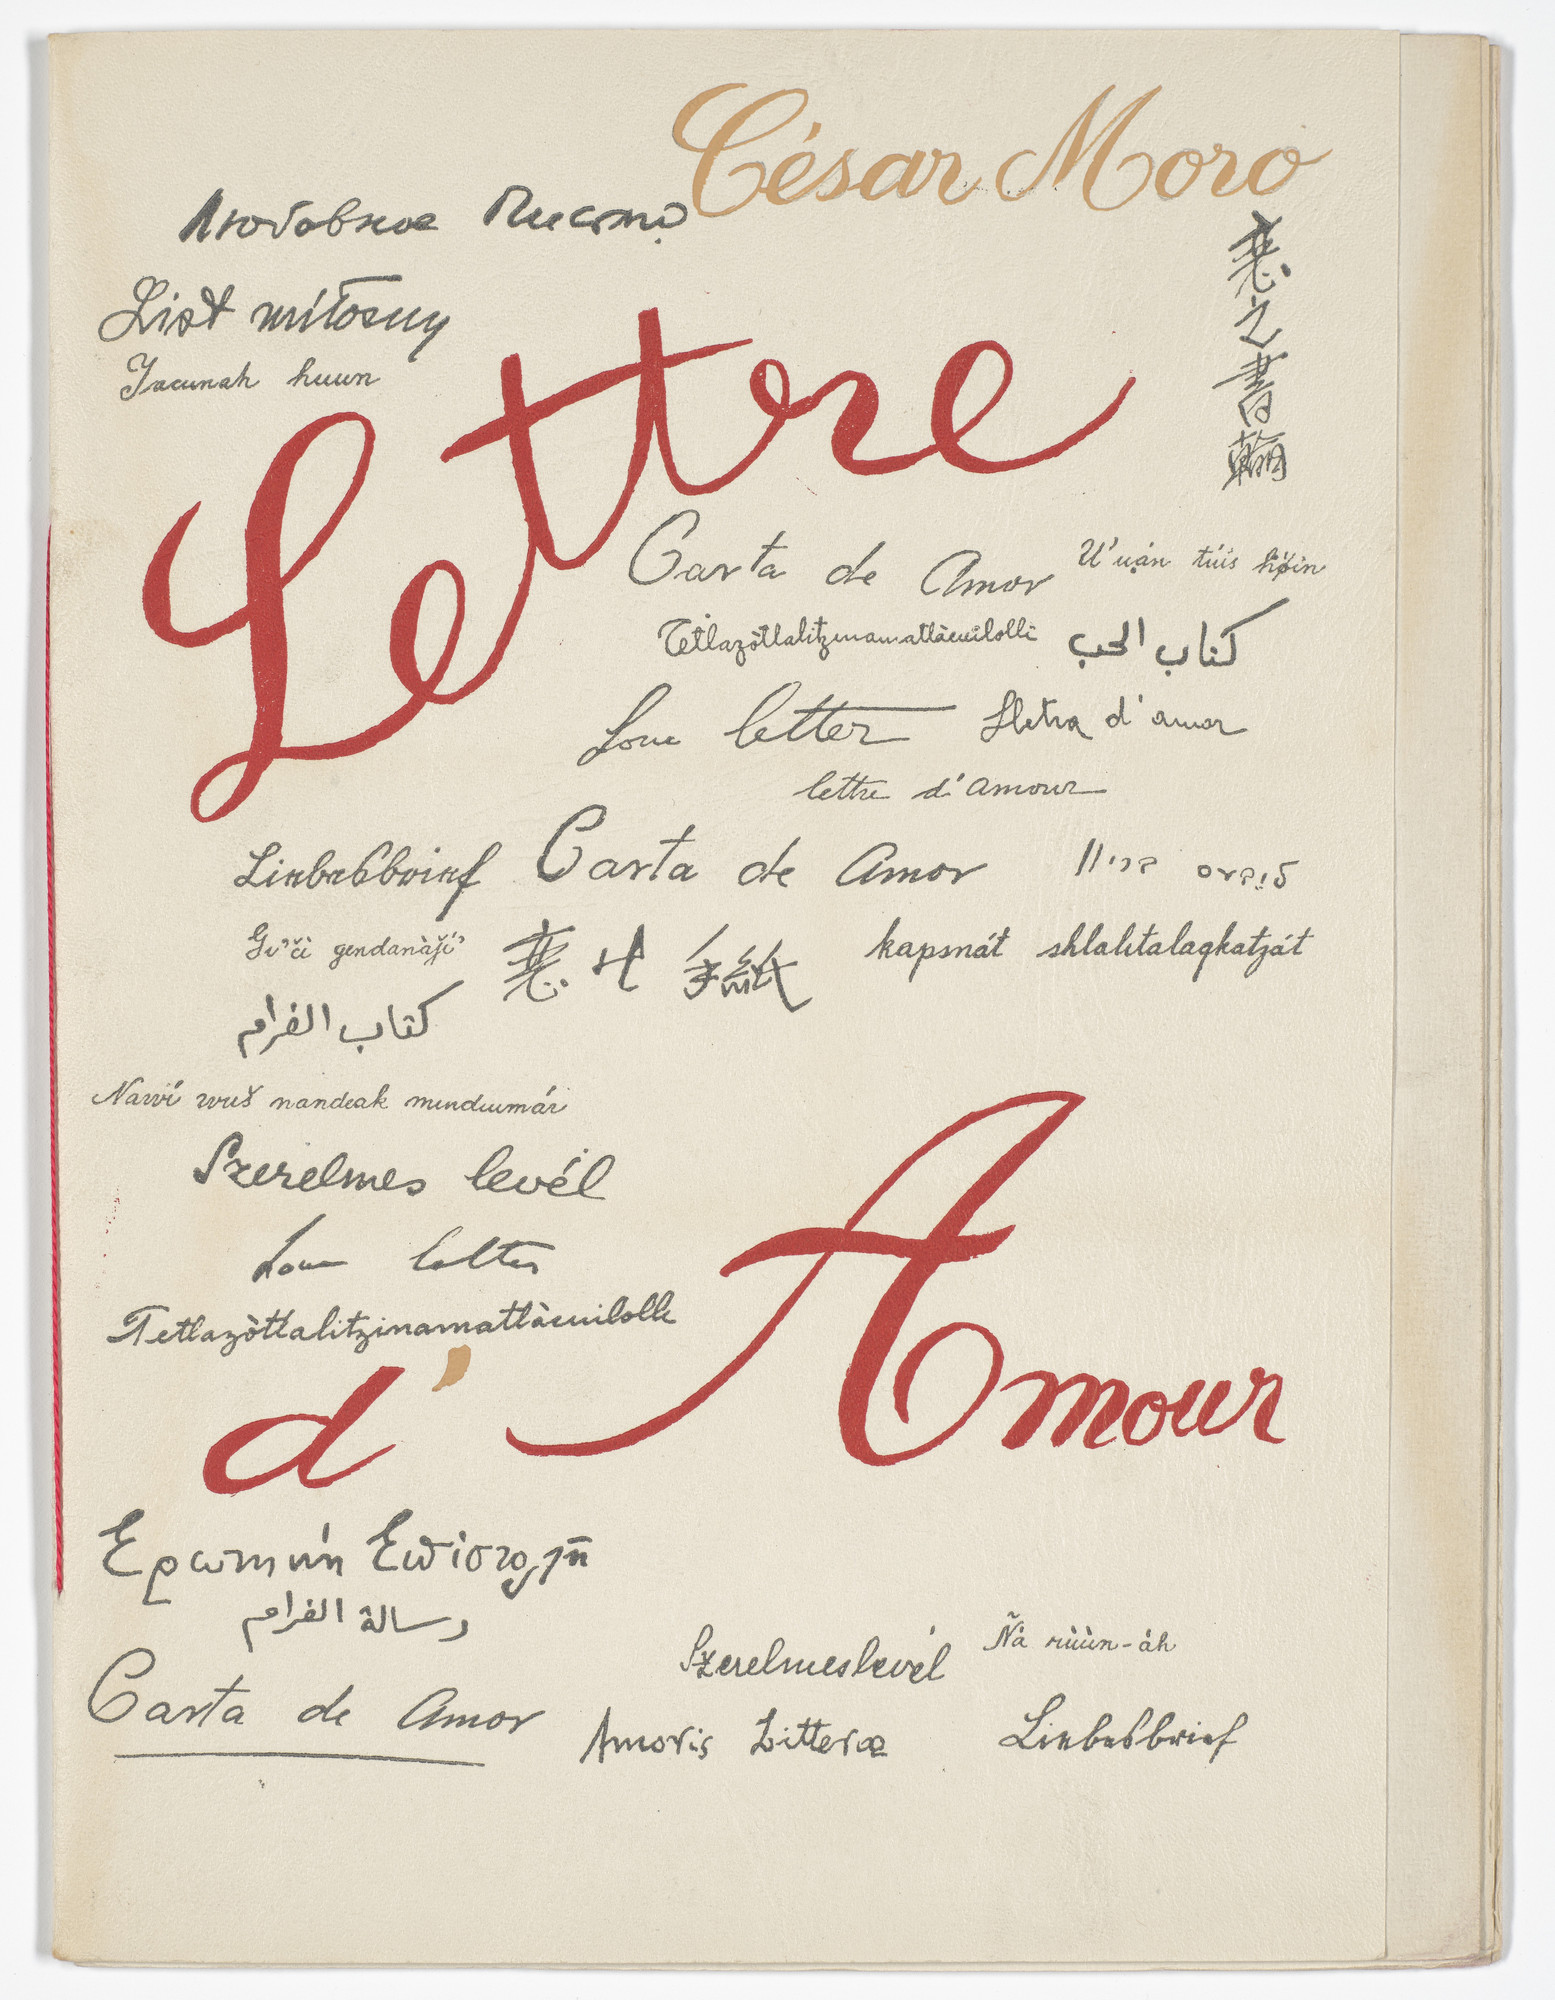 César Moro
Любовное Письмо
List miłosny
Yacunah huun
Lettre
Carta de Amor
tùis
Tetlazòtlalitzinamatlàcuilolli
كتاب الحب
Love letter
Lletra d'amor
lettre d'amour
Liebesbrief
Carta de Amor
gendanàží'
kapsnát shlalitalaqkatzát
كتاب الغرام
Nawí wuš nandeak mindiumár
Szerelmes levél
Love letter
Tetlazòtlalitzinamatlàcuilolli
d'Amour
Ερωτικὴ Επιστολή
رسالة الغرام
Carta de Amor
Szerelmeslevél
Ñà rùùn-àh
Amoris Litteræ
Liebesbrief